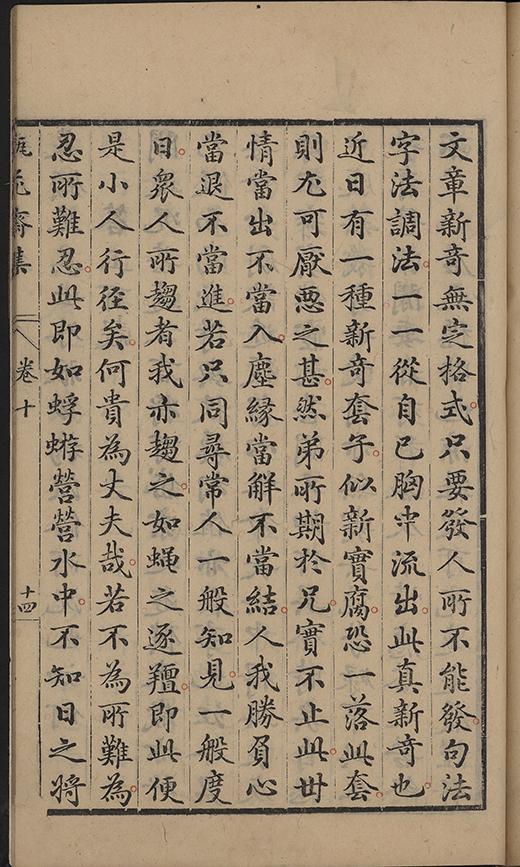 文章新奇無定格式只要發人所不能發句法
字法調法一一從自己胸中流出此真新奇也
近日有一種新奇套子似新實腐恐一落此套
則尤可厭惡之甚然弟所期於兄實不止此世
情當出不當入塵緣當解不當結人我勝負心
當退不當進若只同尋常人一般知見一般度
日衆人所趨者我亦趨之如蝇之逐羶即此便
是小人行徑矣何貴為丈夫哉若不為所難為
忍所難忍此即如蜉蝣營營水中不知日之將
瓶花齋集
卷十
十四